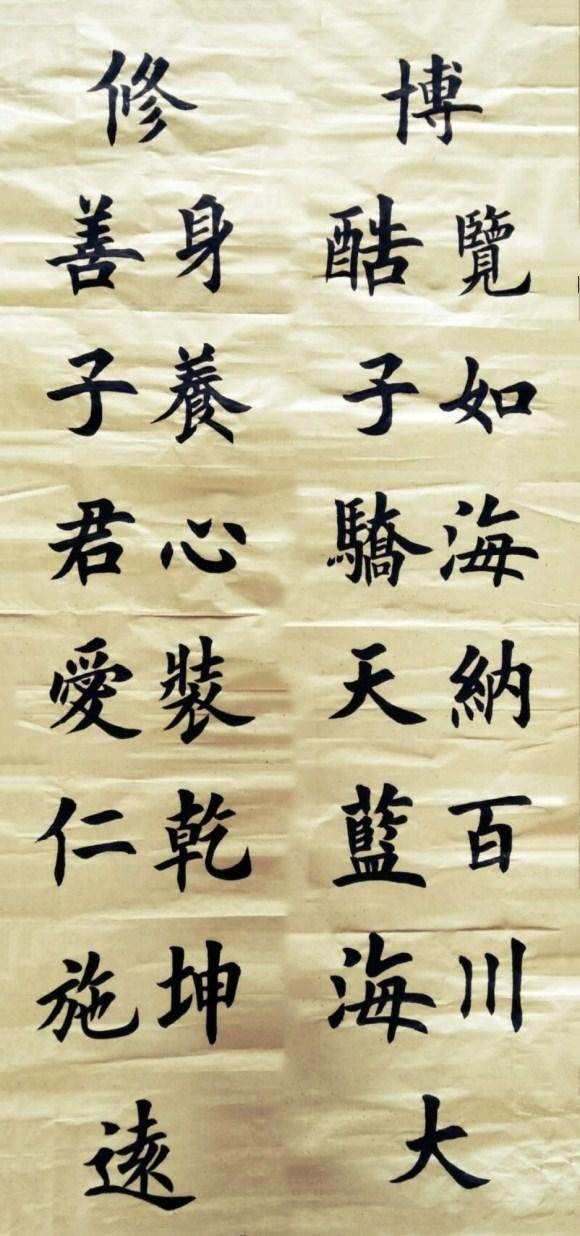 博覽如海納百川
酷子驕天藍海大
修身養心裝乾坤
善子君愛仁施遠